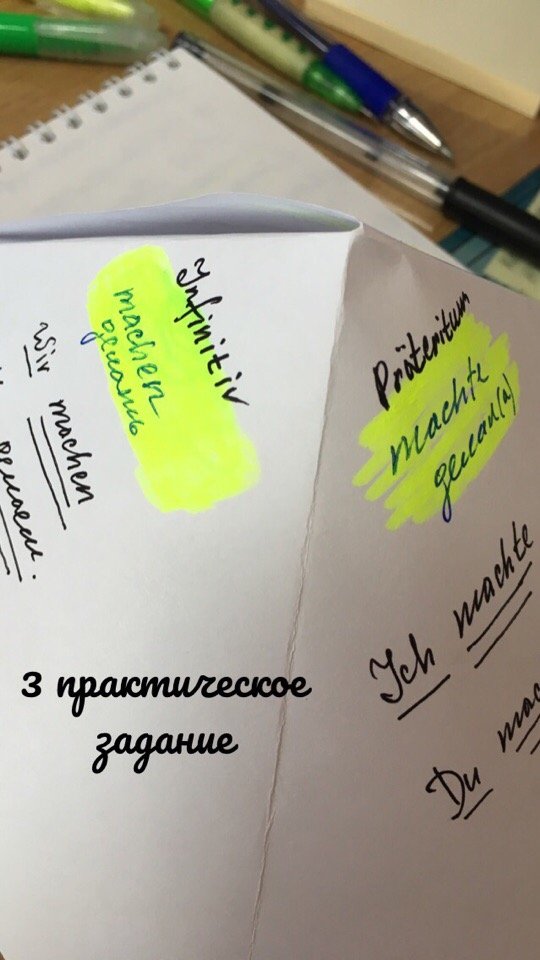 Infinitiv
machen
делать
Wir machen
делаем.
Präteritum
machte
делал(а)
Ich machte
Du
3 практическое
задание